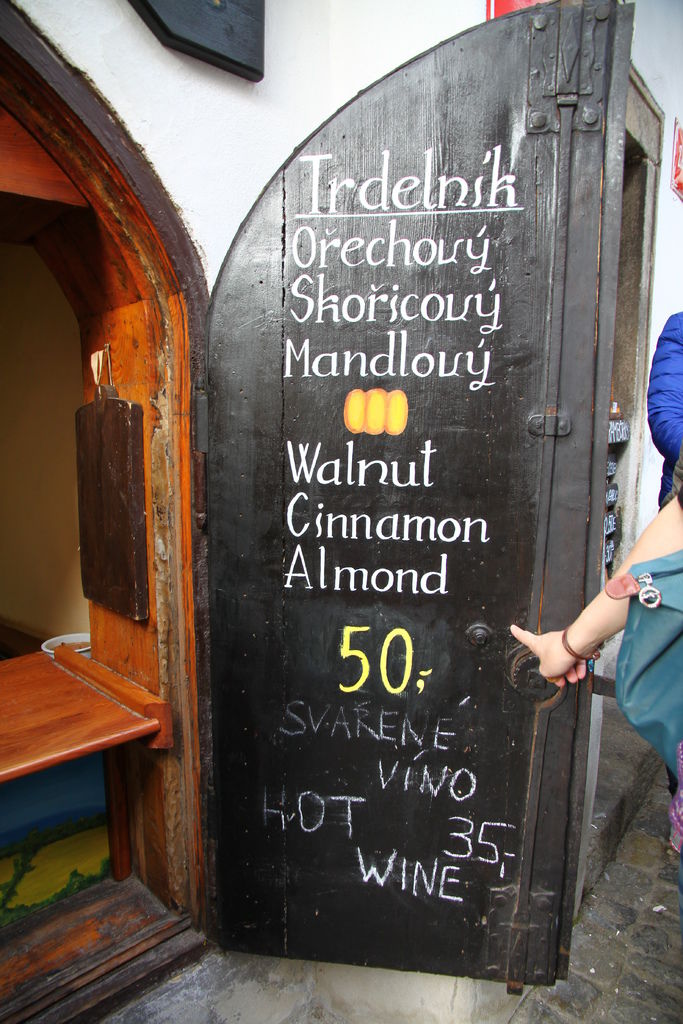 Trdelník
Ořechový
Skořicový
Mandlový
Walnut
Cinnamon
Almond
50,-
SVAŘENÉ
VÍNO
HOT
35,-
WINE